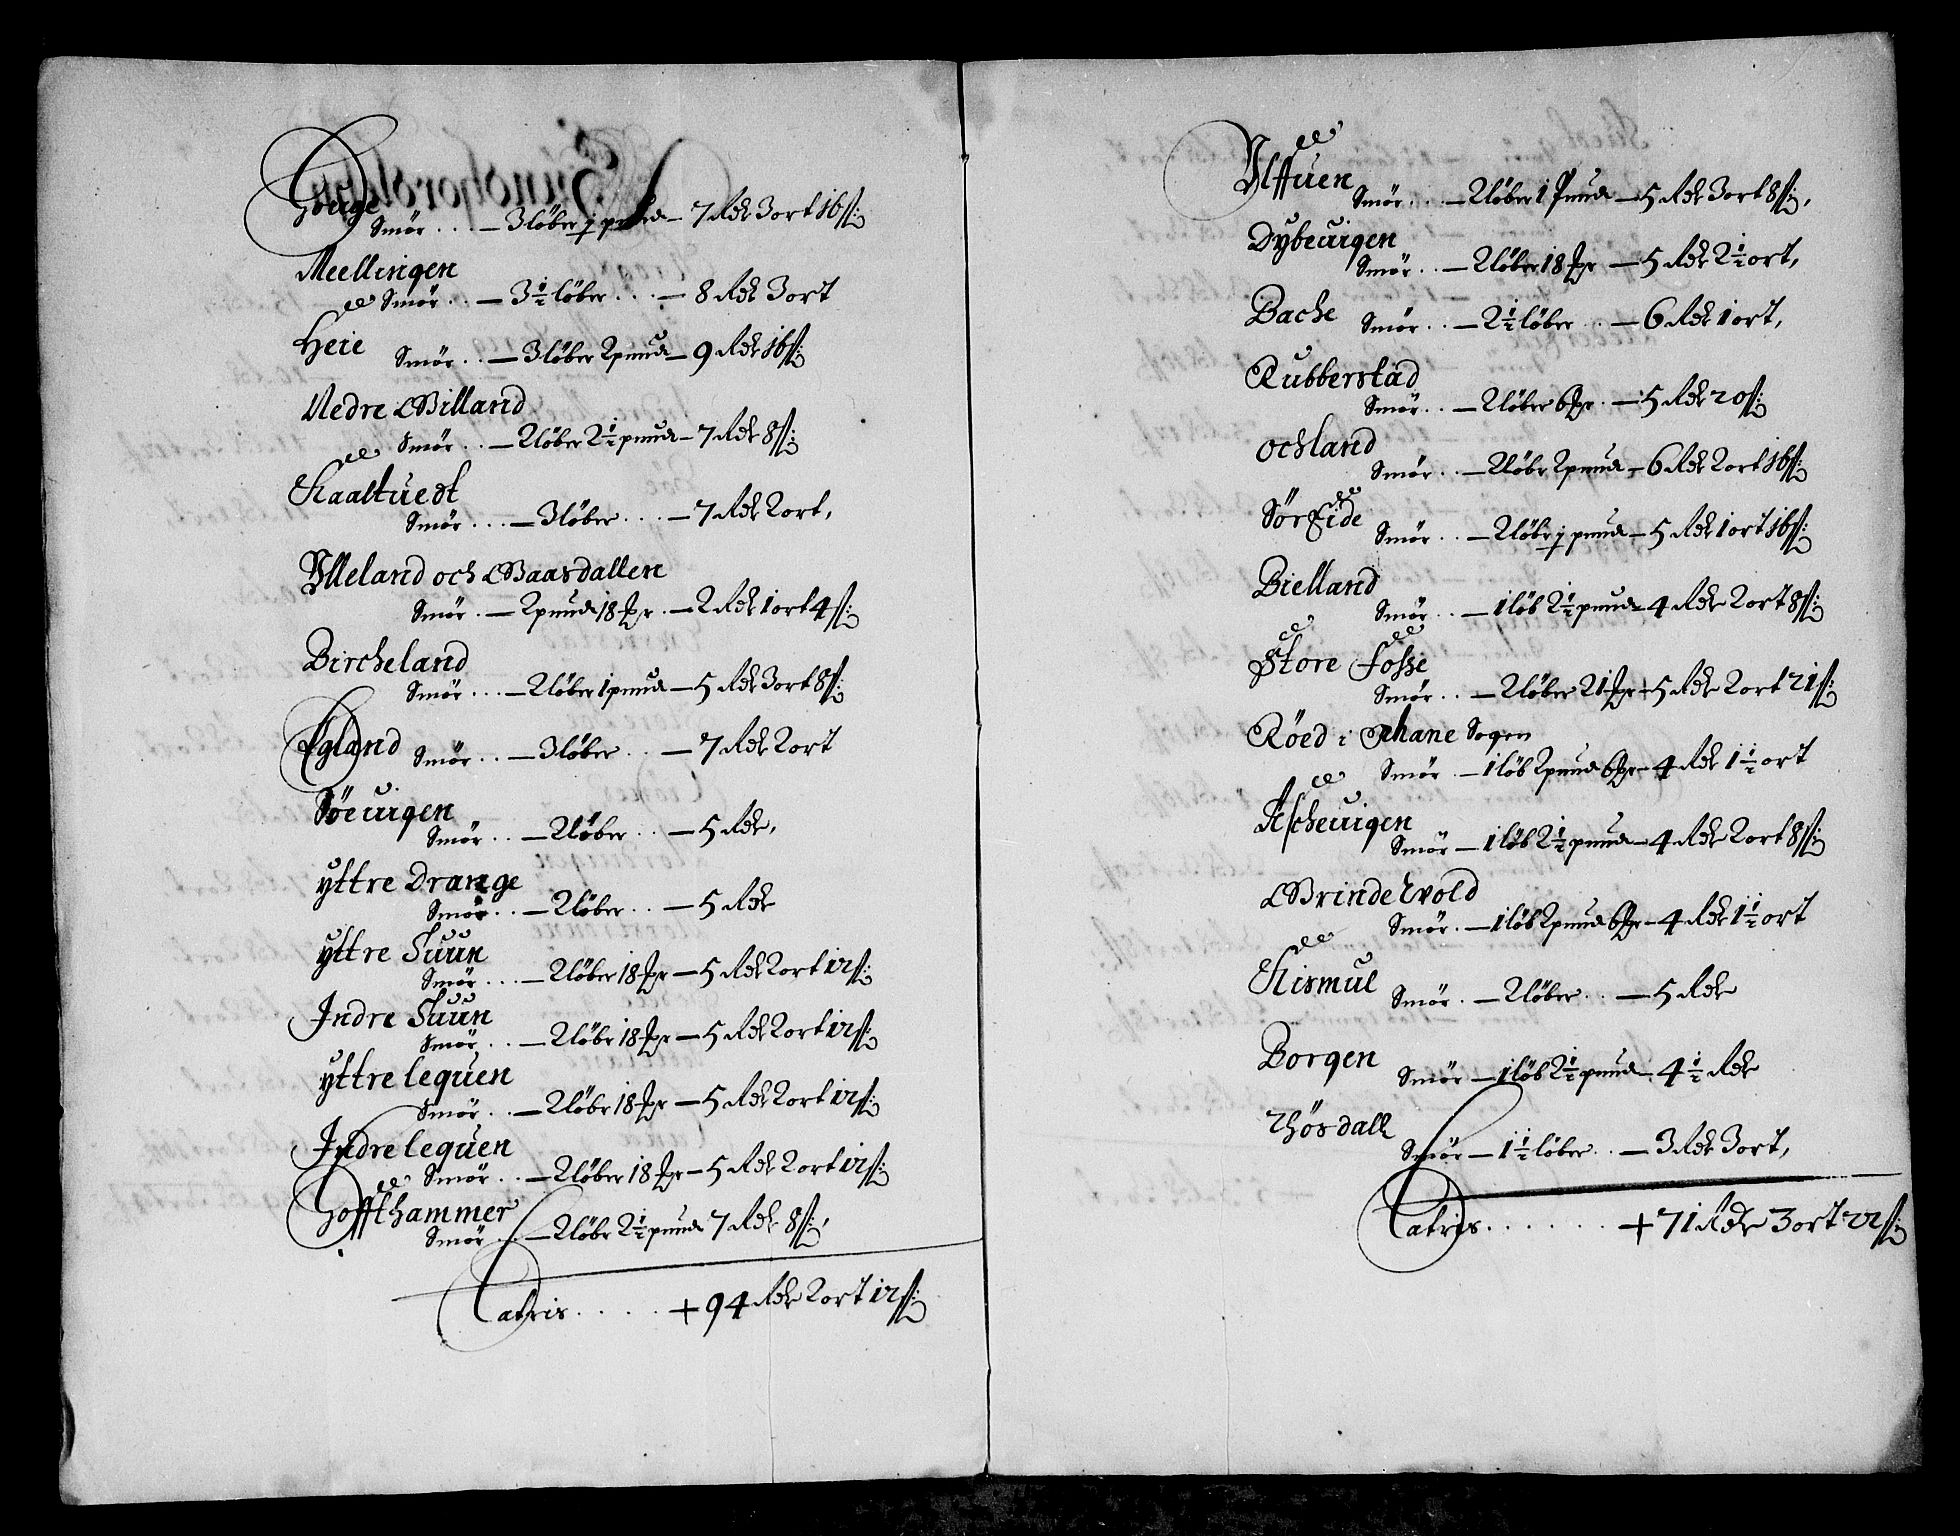 Houge
Smör . . . — 3 löber j pund — 7 Rdr 3 ort 16 ß:
Meellingen
Smör . . — 3½ löber . . . — 8 Rdr 3 ort
Heie
Smör . . — 3 löber 2 pund — 9 Rdr 16 ß:
Nedre Billand
Smör . . — 2 löber 2½ pund — 7 Rdr 8 ß:
Kaaltuedt
Smör . . . — 3 löber . . . — 7 Rdr 2 ort,
Ylleland och Baasdallen
Smör . — 2 pund 18 mr . — 2 Rdr 1 ort 4 ß:
Bircheland
Smör . . . — 2 löber 1 pund — 5 Rdr 3 ort 8 ß:
Egland Smör . . — 3 löber . . — 7 Rdr 2 ort
Söeuigen
Smör . . — 2 löber . . — 5 Rdr,
yttre Drange
Smör . . — 2 löber . . — 5 Rdr
yttre Suun
Smör . . . — 2 löber 18 mr — 5 Rdr 2 ort 12 ß:
Indre Suun
Smör . . . — 2 löbr 18 mr — 5 Rdr 2 ort 12 ß:
yttre lequen
Smör . . — 2 löbr 18 mr — 5 Rdr 2 ort 12 ß:
Indre lequen
Smör . . — 2 löber 18 mr — 5 Rdr 2 ort 12 ß:
Hoffthammer
Smör . . — 2 löbr 2½ pund 7 Rdr 8 ß:,
Latris . . . . . + 94 Rdr 2 ort 12 ß:
Ulffuen
Smör . . . — 2 löber 1 Pund — 5 Rdr 3 ort 8 ß:,
Dybeuigen
Smör . . — 2 löber 18 mr — 5 Rdr 2½ ort,
Bache Smör . . — 2½ löber . . — 6 Rdr 1 ort,
Rubberstad
Smör . . — 2 löber 6 mr . — 5 Rdr 20 ß:
ochland
Smör . . — 2 löbr 2 pund — 6 Rdr 2 ort 16 ß:
Sör Eide
Smör . . — 2 löbr j pund — 5 Rdr 1 ort 16 ß:
Bielland
Smör . . — 1 löb 2½ pund — 4 Rdr 2 ort 8 ß:
Store Fosse
Smör . . — 2 löber 21 mr — 5 Rdr 2 ort 21 ß:
Röed i Phane Sogen
Smör . — 1 löb 2 pund 6 mr — 4 Rdr 1½ ort
Ascheuigen
Smör — 1 löb 2½ pund — 4 Rdr 2 ort 8 ß:
Brindeluold
Smör . — 1 löb 2 pund 6 mr — 4 Rdr 1½ ort
Kismul
Smör . — 2 löber . . — 5 Rdr
Borgen
Smör — 1 löb 2½ pund — 4½ Rdr
Thösdall
Smör — 1½ löber . . — 3 Rdr 3 ort,
Latris . . . . . . + 71 Rdr 3 ort 22 ß: